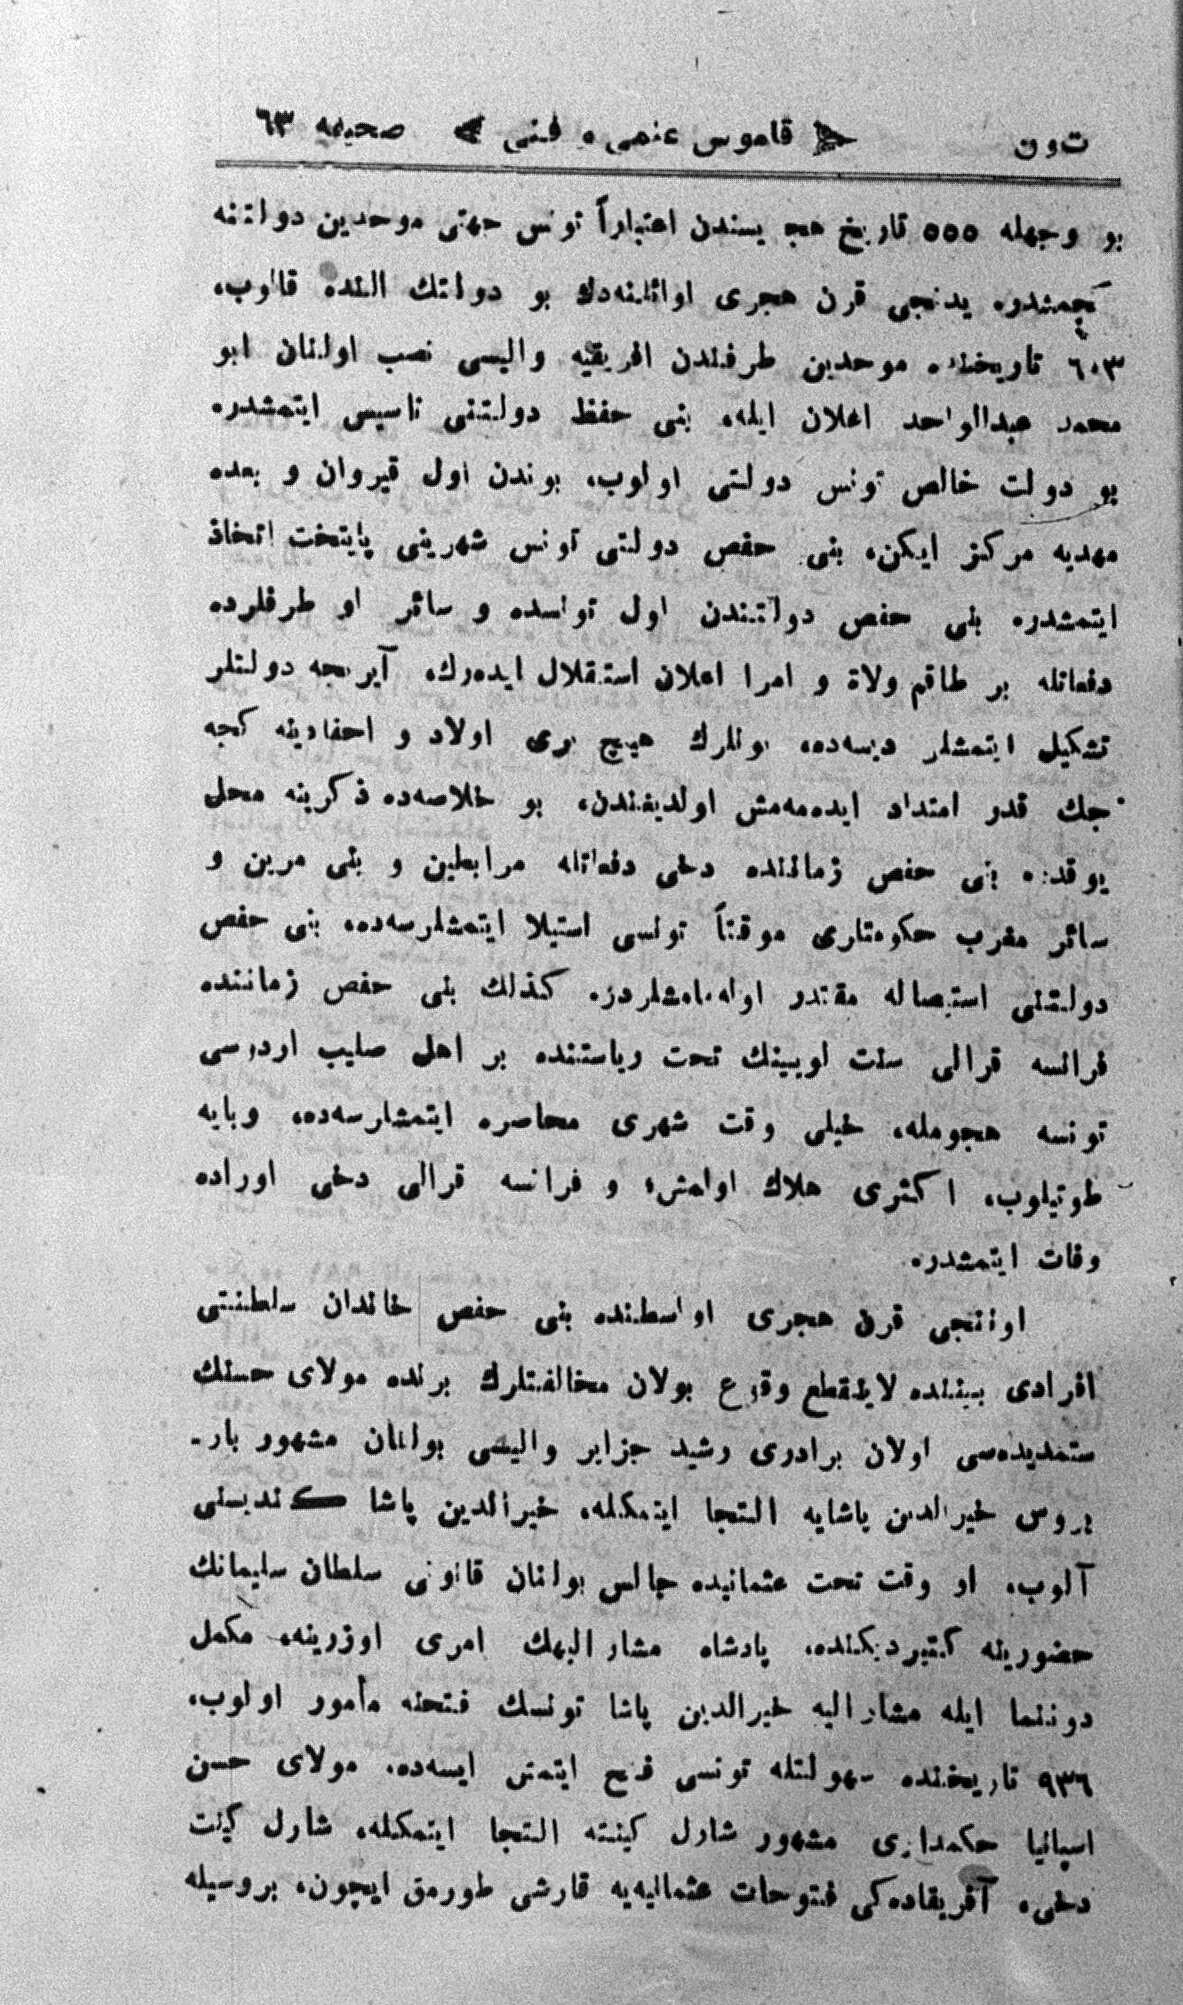 تون قاموس علمی و فنی صحیفه ٦٣
بو وجهله ٥٥٥ تاریخ هجریسندن اعتباراً تونس جهتی موحدین دولتنه
کچمشدر. یدنجی قرن هجری اوائلنه‌دك بو دولتك النده قالوب،
٦٠٣ تاریخنده موحدین طرفندن افریقیه والیسی نصب اولنان ابو
محمد عبدالواحد اعلان ایله، بنی حفظ دولتنی تاسیس ایتمشدر.
بو دولت خالص تونس دولتی اولوب، بوندن اول قیروان و بعده
مهدیه مرکز ایکن، بنی حفص دولتی تونس شهرینی پایتخت اتخاذ
ایتمشدر. بنی حفص دولتندن اول تونسده و سائر او طرفلرده
دفعاتله بر طاقم ولاة و امرا اعلان استقلال ایده‌رك، آیریجه دولتلر
تشکیل ایتمشلر دیسه‌ده، بونلرك هیچ بری اولاد و احفادینه کچه
جك قدر امتداد ایده‌مه‌مش اولدیغندن، بو خلاصه‌ده ذکرینه محل
یوقدر. بنی حفص زماننده دخی دفعاتله مرابطین و بنی مرین و
سائر مغرب حکومتلری موقتاً تونسی استیلا ایتمشلرسه‌ده، بنی حفص
دولتنی استیصاله مقتدر اوله‌مامشلردر. کذلك بنی حفص زماننده
فرانسه قرالی سنت لویینك تحت ریاستنده بر اهل صلیب اردوسی
تونسه هجومله، خیلی وقت شهری محاصره ایتمشلرسه‌ده، وبایه
طوتیلوب، اکثری هلاك اولمش، و فرانسه قرالی دخی اوراده
وفات ایتمشدر.
اوننجی قرن هجری اواسطنده بنی حفص خاندان سلطنتی
افرادی بیننده لاینقطع وقوع بولان مخالفتلرك برنده مولای حسنك
ستمدیده‌سی اولان برادری رشید جزایر والیسی بولنان مشهور بار-
بروس خیرالدین پاشایه التجا ایتمکله، خیرالدین پاشا کندیسنی
آلوب، او وقت تحت عثمانیده جالس بولنان قانونی سلطان سلیمانك
حضورینه کتیردیکنده، پادشاه مشار الیهك امری اوزرینه، مکمل
دوننما ایله مشارالیه خیرالدین پاشا تونسك فتحنه مأمور اولوب،
٩٣٦ تاریخنده سهولتله تونسی فتح ایتمش ایسه‌ده، مولای حسن
اسپانیا حکمداری مشهور شارل کینته التجا ایتمکله، شارل کینت
دخی، آفریقاده‌کی فتوحات عثمانیه‌یه قارشی طورمق ایچون، بروسیله